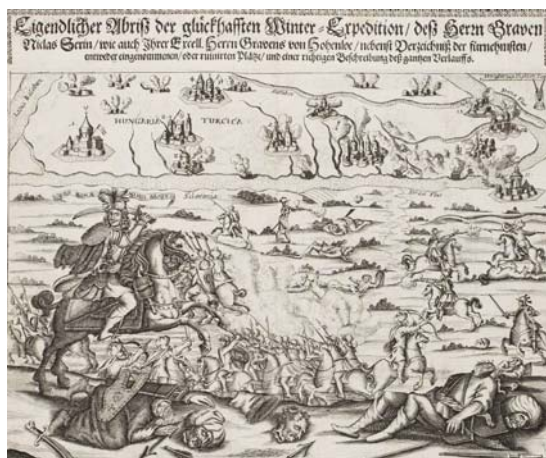 Eigendlicher Abriß der glückhafften Winter-Expedition/ deß Herrn Graven
Niclas Serin/ wie auch Jhrer Excell. Herrn Gravens von Hohenloe/ nebenst Verzeichniß der fürnehmsten/
entweder eingenommenen/ oder ruinirten Plätze/ und einer richtigen Beschreibung deß gantzen Verlauffs.
HUNGARIA TURCICA